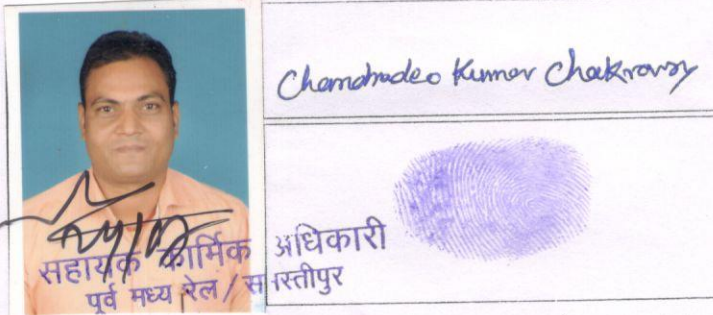 Chandradeo Kumar Chakravarty
सहायक कार्मिक अधिकारी
पूर्व मध्य रेल / समस्तीपुर